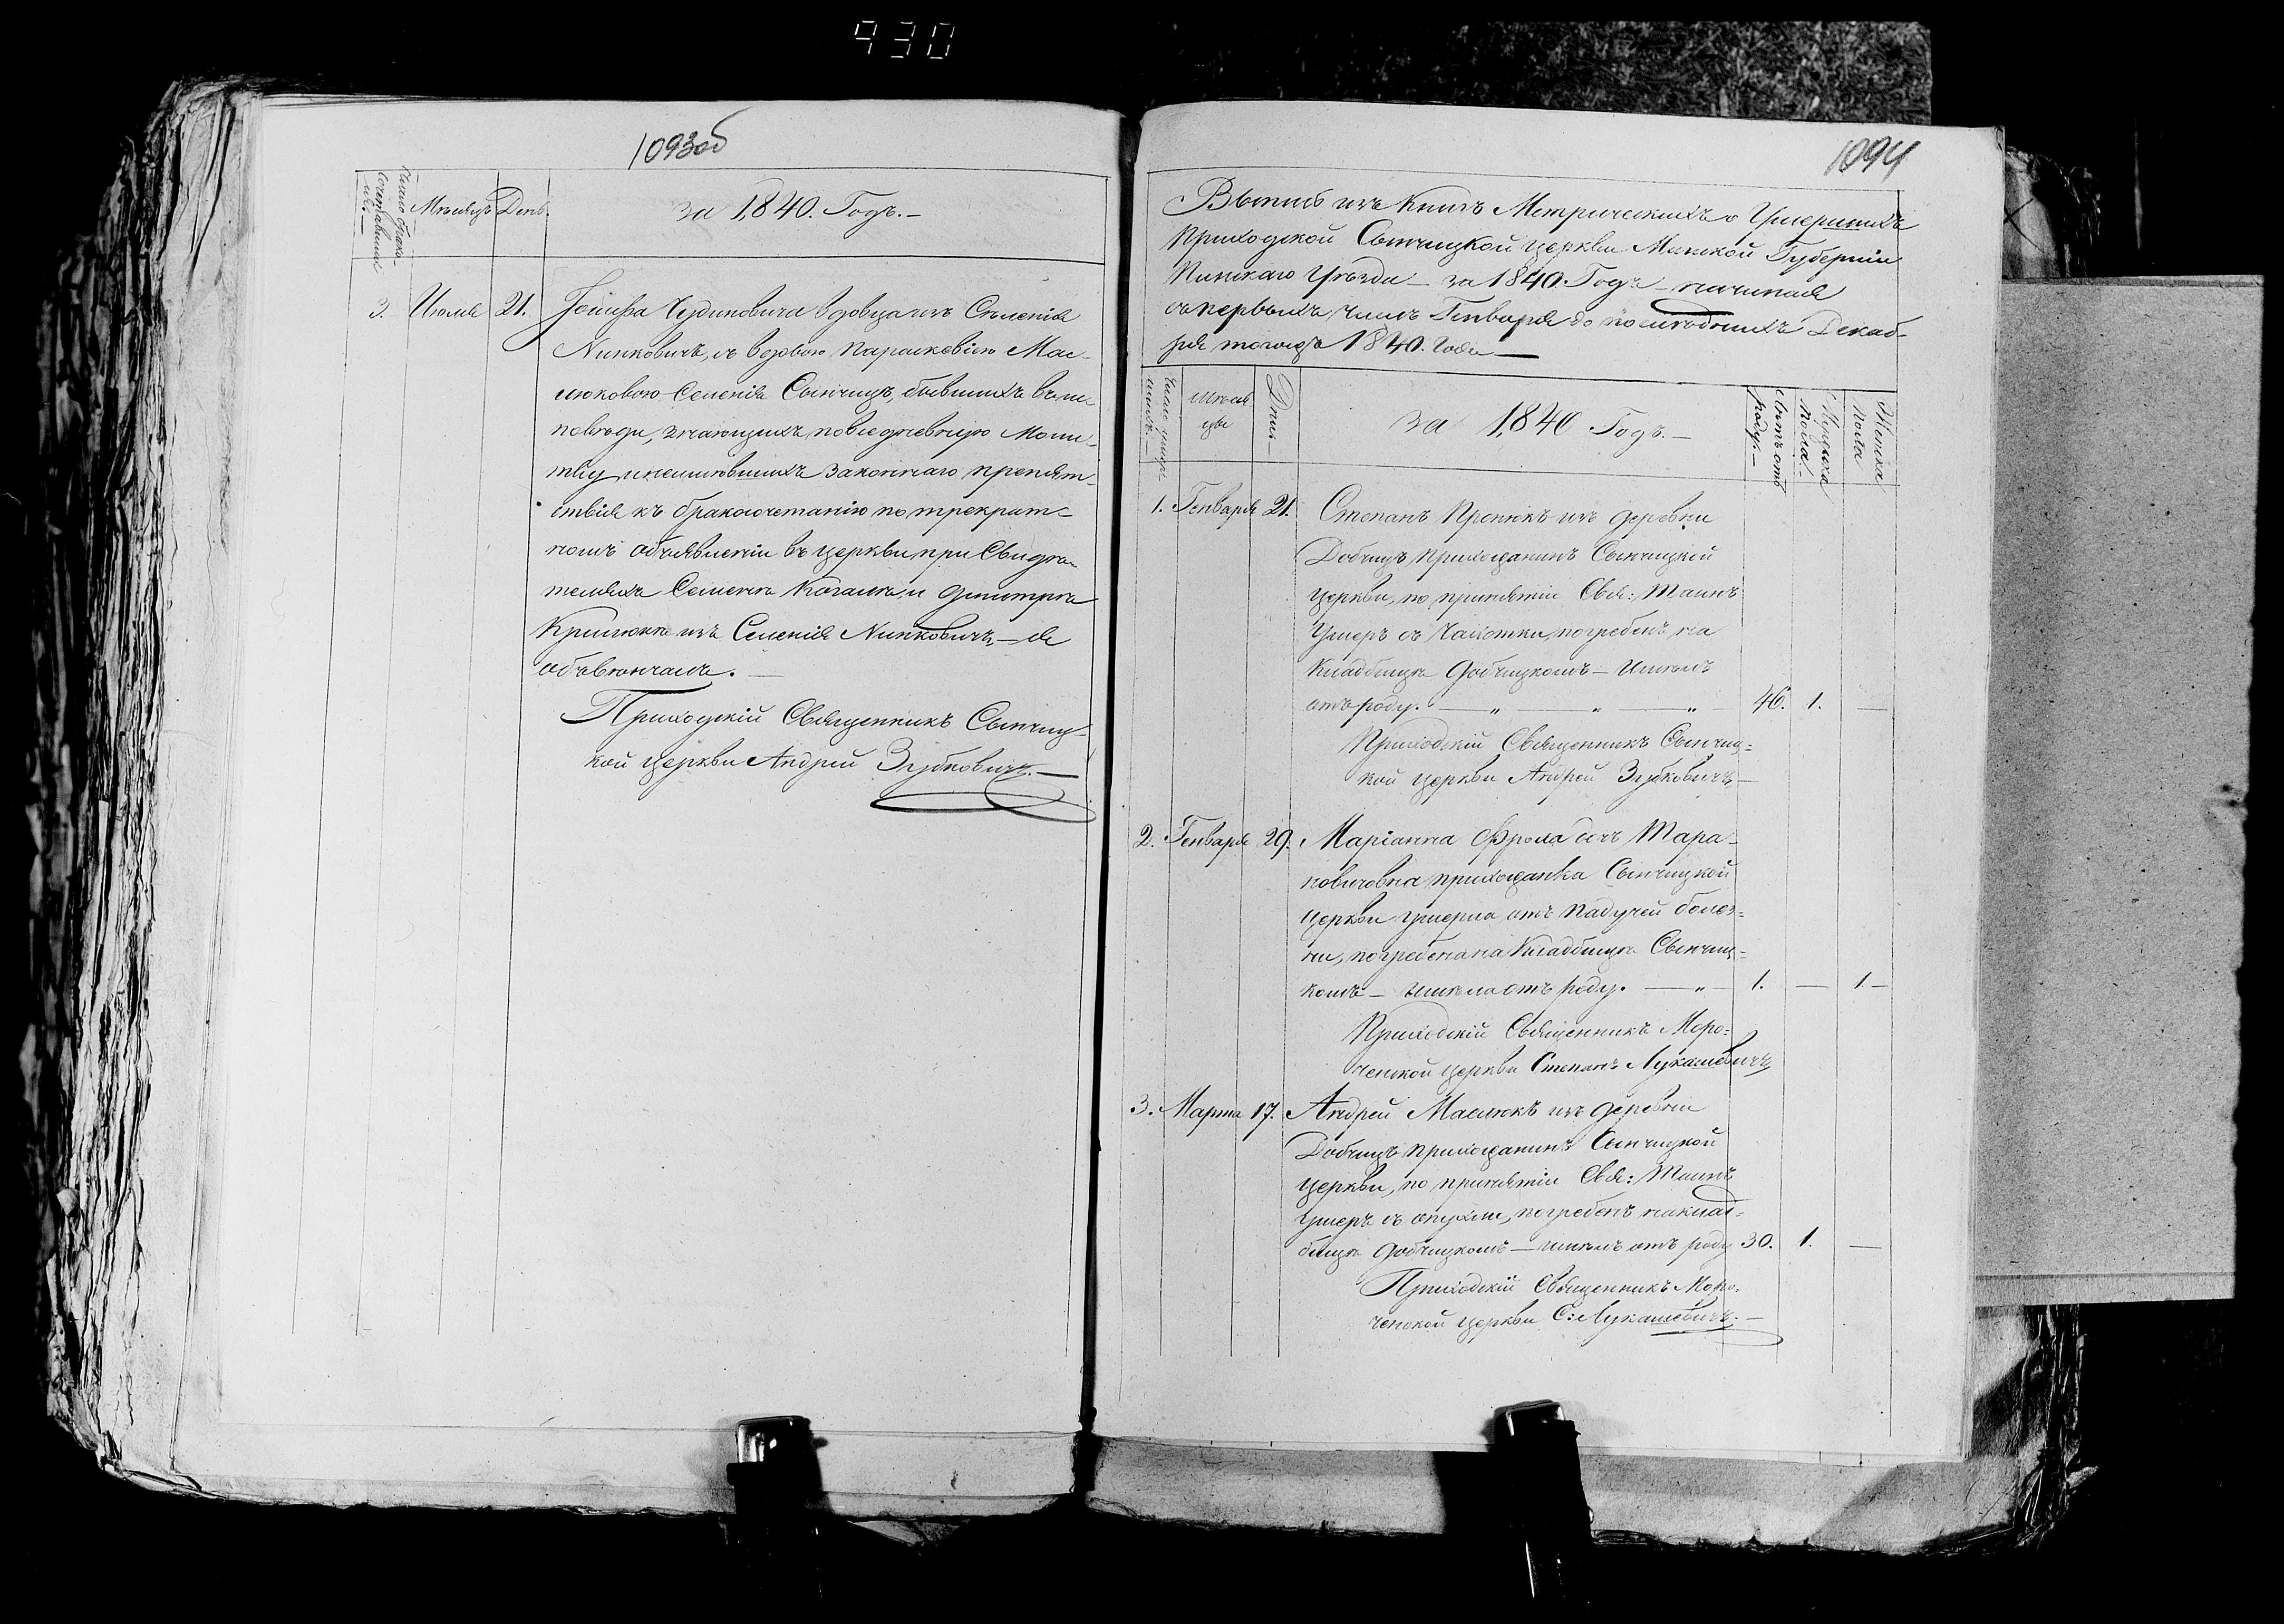 930
1093об
Число брако-
сочетавших-
ся.—
Мѣсяцъ День.
за 1,840. Годъ.—
3. Июля 21. Іосифа Чудиновича вдовца изъ Сѣленія
Нинковичь, съ вдовою Параскевіею Мас-
люковою Селенія Сынчицъ, бывшихъ въ ис-
повѣди, знающихъ повседневную Моли-
тву, и неимѣвшихъ законнаго препят-
ствія къ бракосочетанію по трекрат-
номъ объявленіи въ церкви, при Свидѣ-
теляхъ Семена и Дмитрія
изъ Селенія Нинковичъ,—я
обвѣнчалъ.—
Приходскій Священникъ Сынчиц-
кой церкви Андрей Зубковичъ.—
1094
Выпись изъ книгъ Метрическихъ о Умершихъ
Приходской Сынчицкой церкви Минской Губерніи
Пинскаго Уѣзда— за 1840. Годъ— начиная
съ первыхъ чиселъ Генваря до послѣднихъ Декаб-
ря тогожъ 1840. Года—
Число умер-
шихъ.—
Мѣся-
цы
Дни—
за 1,840 Годъ.—
Лѣтъ отъ
роду.—
Мужска
пола.—
Женска
пола
1. Генваря 21. Степанъ Прокикъ изъ деревни
Добчицъ прихожанинъ Сынчицкой
церкви, по принятіи Свя: Таинъ
Умеръ съ Чахотки, погребенъ на
Кладбищѣ Добчицкомъ— Имѣлъ
отъ роду.— „ — „ — „ — 46. 1. —
Приходскій Священникъ Сынчиц=
кой церкви Андрей Зубковичъ—
2. Генваря 29. Маріанна Фрола дочъ Тара-
новичовна прихожанка Сынчицкой
церкви умерла отъ падучей болез=
ни, погребена на Кладбищѣ Сынчиц=
комъ— имѣла отъ роду.— „ — 1. — 1.—
Приходскій Священникъ Моро=
ченской церкви Степанъ Лукашевичъ
3. Марта 17. Андрей Маслюкъ изъ деревни
Добчицъ прихожанинъ Сынчицкой
церкви, по принятіи Свя: Таинъ
умеръ съ опухли, погребенъ на клад=
бищѣ Добчицкомъ— имѣлъ отъ роду 30. 1. —
Приходскій Священникъ Моро-
ченской церкви С: Лукашевичъ.—